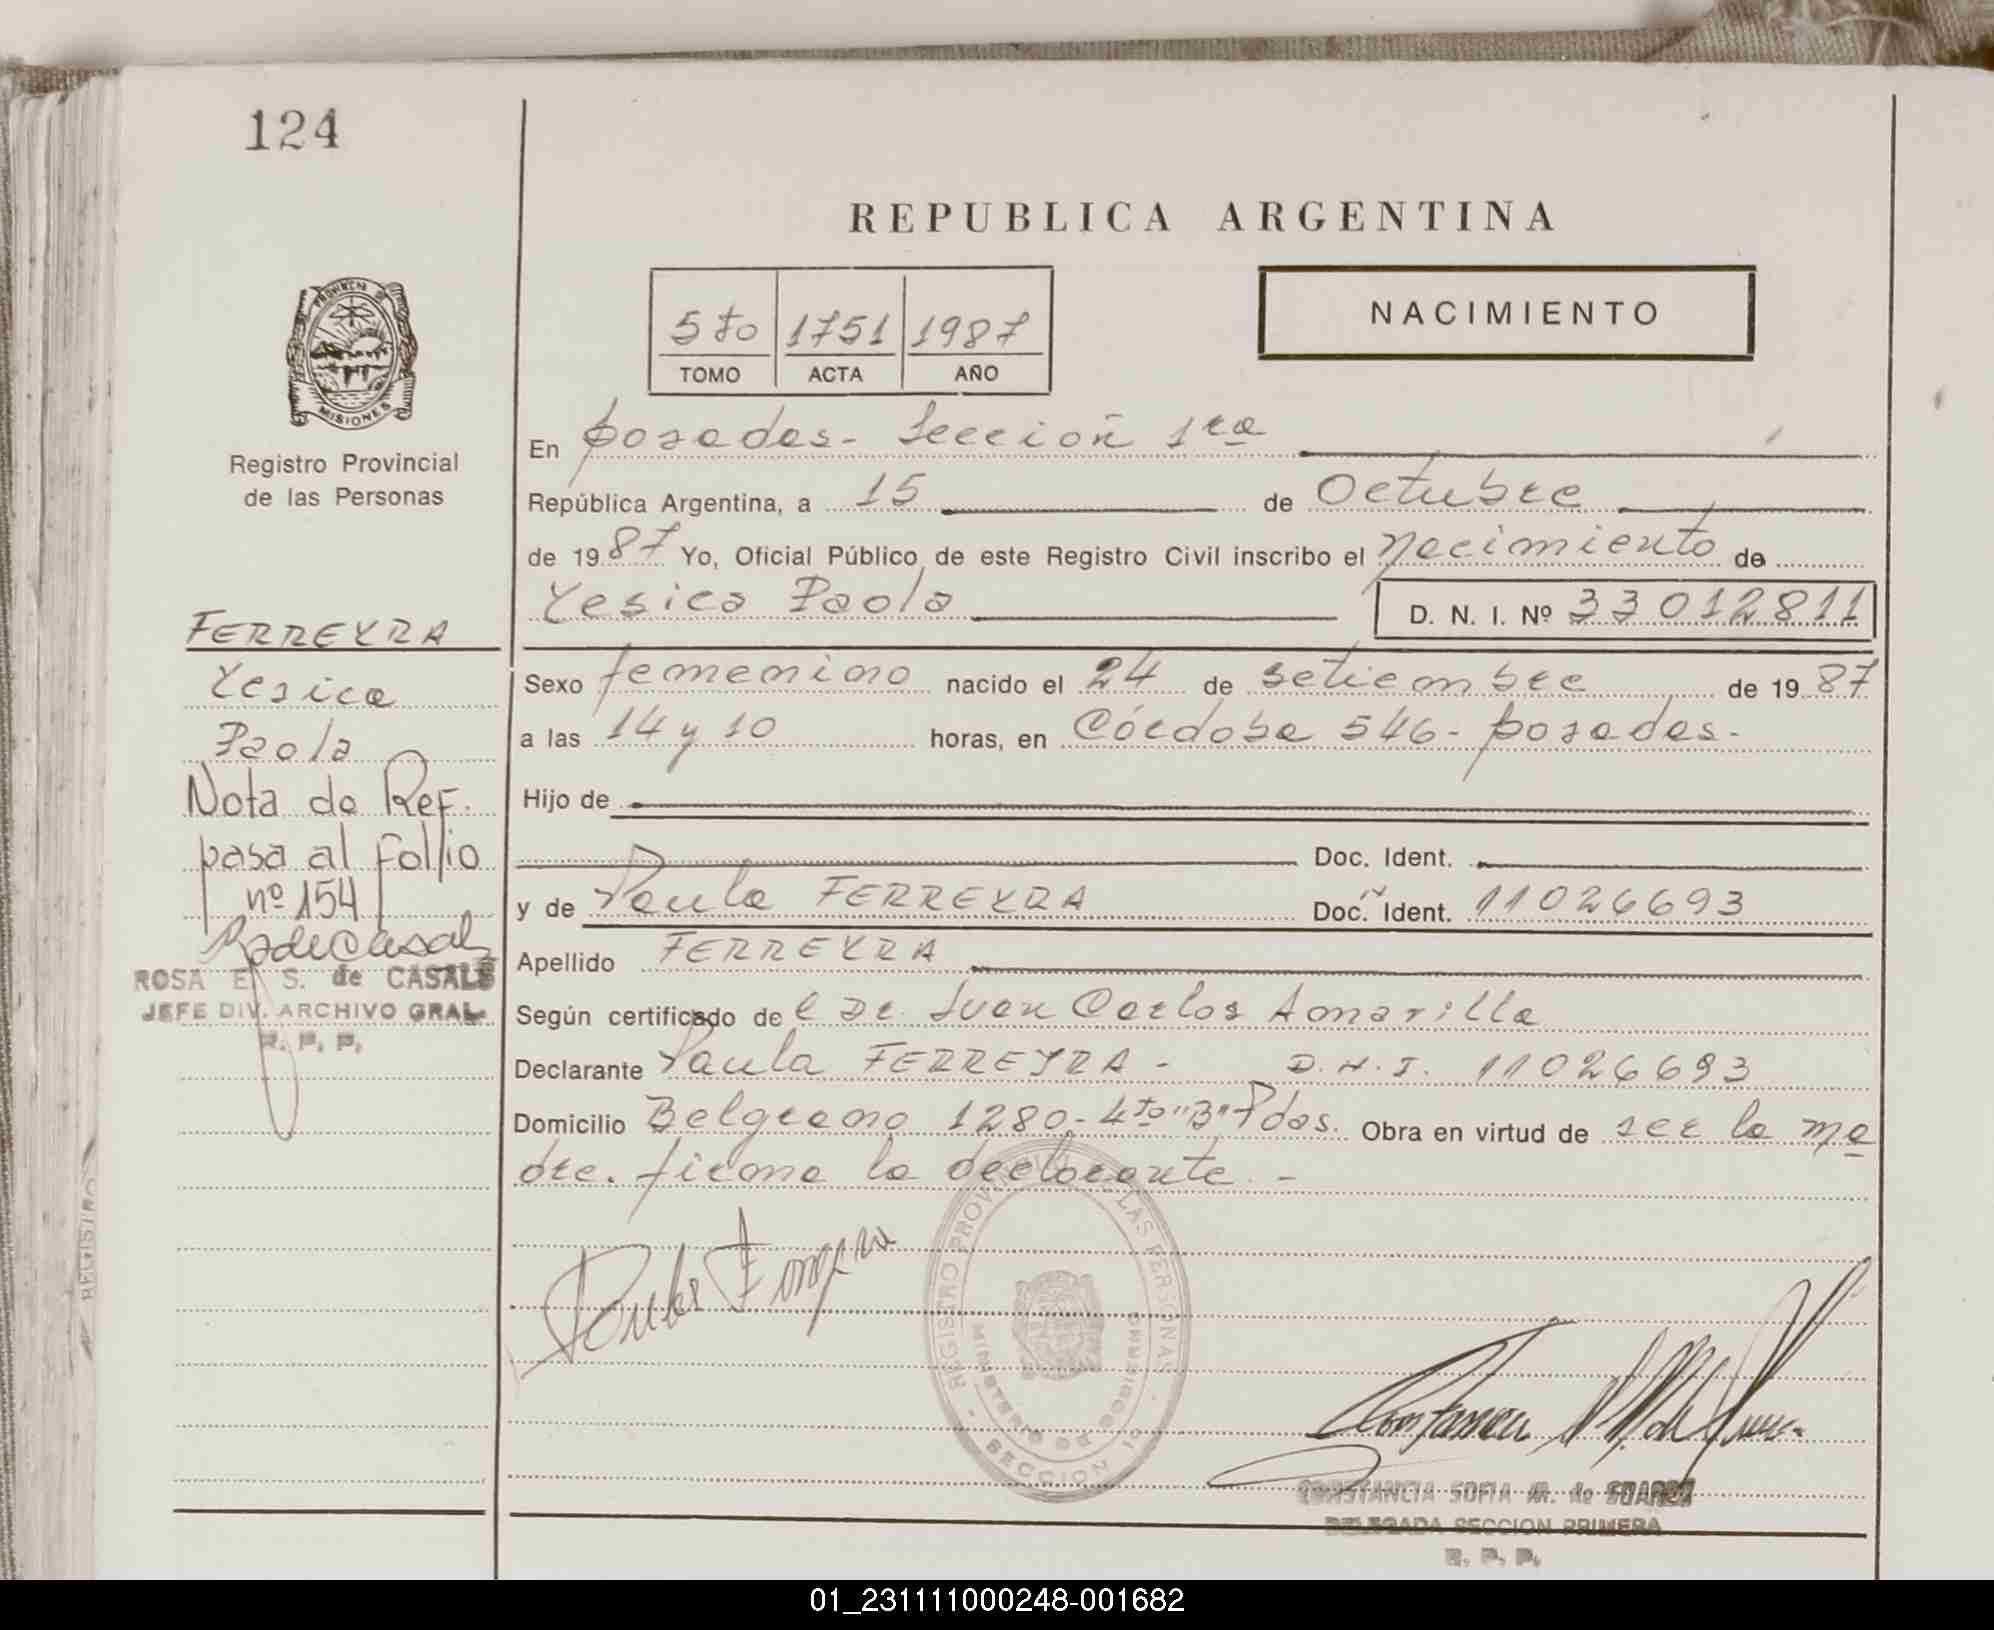 124
REPUBLICA ARGENTINA
5to 1751 1987
TOMO ACTA AÑO
NACIMIENTO
PROVINCIA DE
MISIONES
Registro Provincial
de las Personas
En Posadas - Sección 1ra
República Argentina, a 15 de Octubre
de 1987 Yo, Oficial Público de este Registro Civil inscribo el Nacimiento de
Yesica Paola D. N. I. Nº 33012811
FERREYRA
Yesica
Paola
Nota de Ref.
pasa al folio
nº 154
ROSA E. S. de CASALS
JEFE DIV. ARCHIVO GRAL.
R. P. P.
Sexo femenino nacido el 24 de setiembre de 1987
a las 14 y 10 horas, en Córdoba 546 - Posadas -
Hijo de
Doc. Ident.
y de Paula FERREYRA Doc. Ident. 11026693
Apellido FERREYRA
Según certificado de l Dr. Juan Carlos Amarilla
Declarante Paula FERREYRA - D.N.I. 11026693
Domicilio Belgrano 1280 - 4to "B" Pdas. Obra en virtud de ser la ma
dre. firma la declarante. -
Paula Ferreyra
REGISTRO PROVINCIAL DE LAS PERSONAS
MINISTERIO DE GOBIERNO
SECCION 1ª
CONSTANCIA SOFIA M. de
DELEGADA SECCION PRIMERA
R. P. P.
REGISTRO
01_231111000248-001682